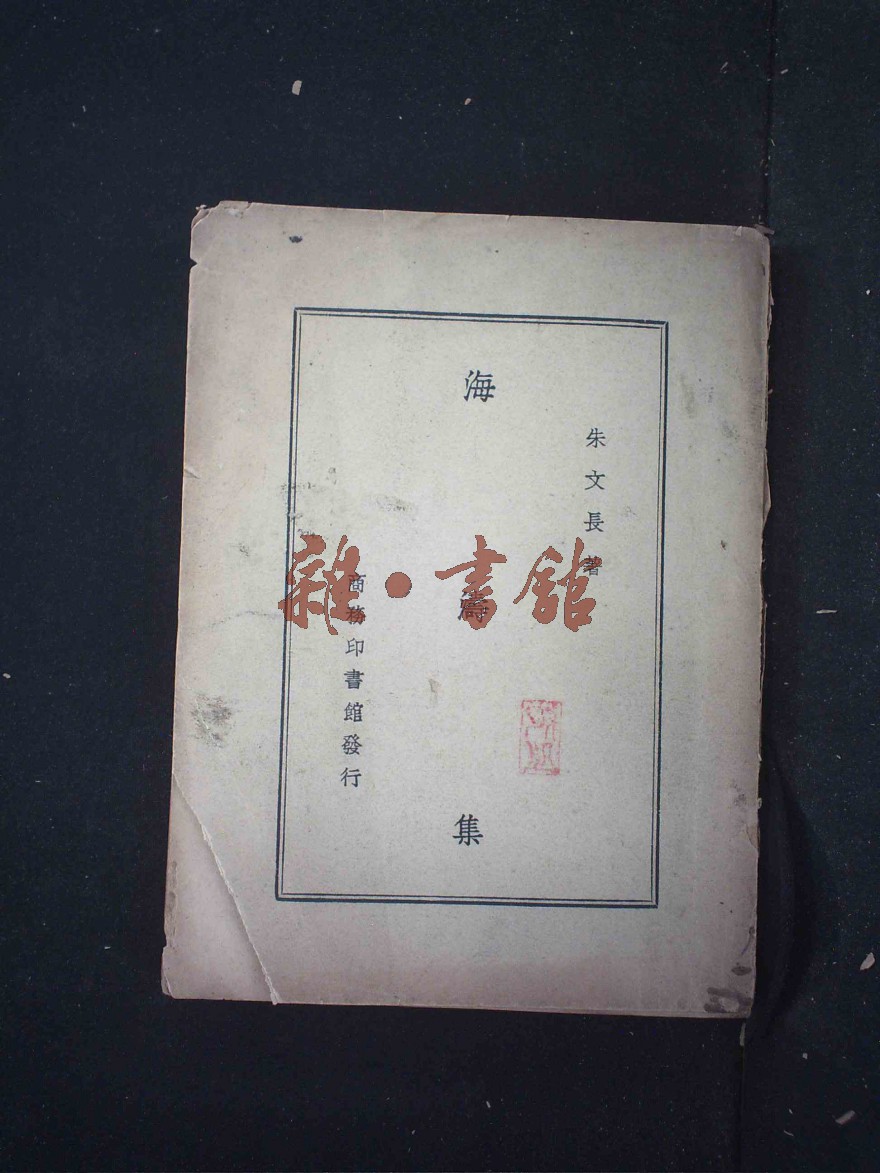 朱文長著
海濤集
商務印書館發行
雜·書館